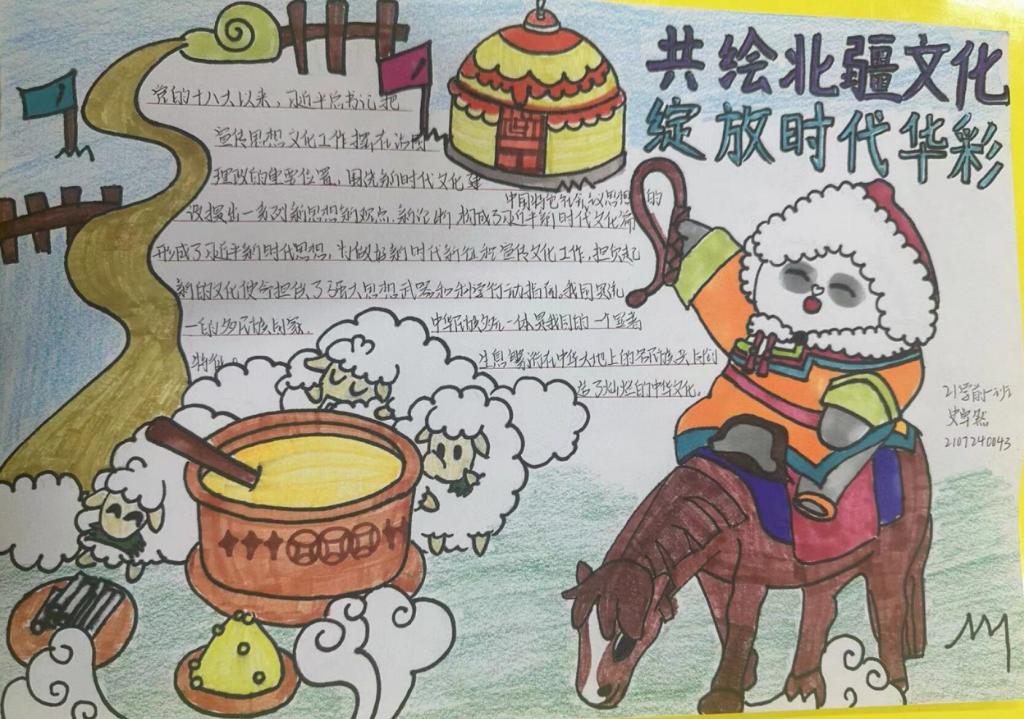 共绘北疆文化
绽放时代华彩
党的十八大以来，习近平总书记把
宣传思想文化工作摆在治国
理政的重要位置，围绕新时代文化建
设提出一系列新思想新观点新论断，构成了习近平新时代文化篇
中国特色社会主义思想的
形成了习近平新时代思想，为做好新时代新征程宣传文化工作，担负起
新的文化使命提供了强大思想武器和科学行动指南。我国是统
一的多民族国家，
中华民族多元一体是我国的一个显著
特征。
生息繁衍在中华大地上的各民族共同创
造了灿烂的中华文化。
21学前一班
2107240043